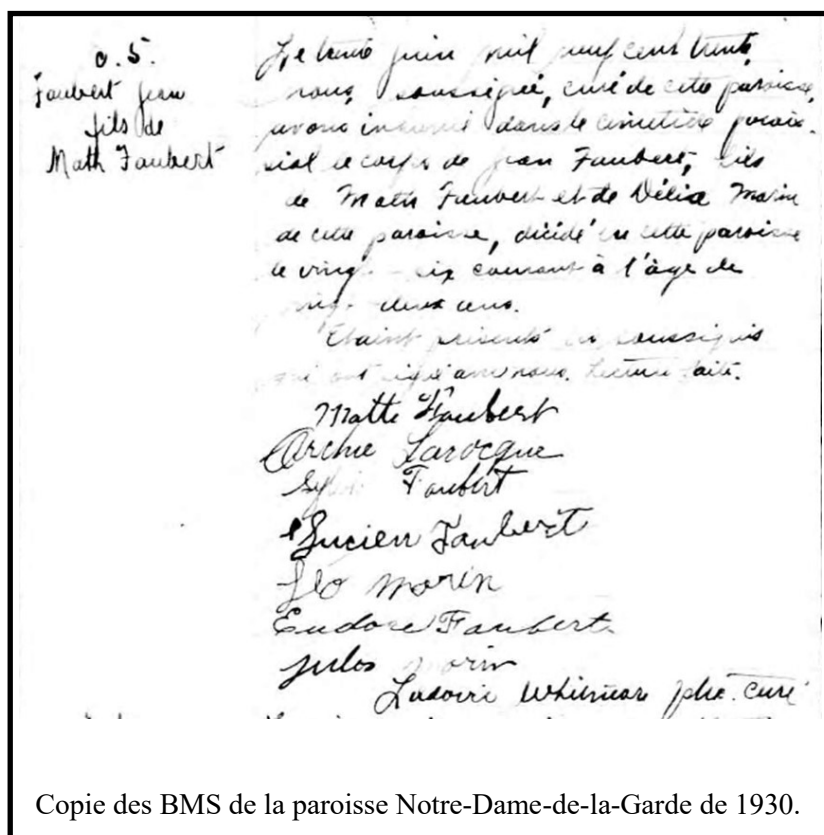 o. 5.
Faubert Jean
fils de
Math Faubert
Le trente juin mil neuf cent trente,
nous, soussigné, curé de cette paroisse,
avons inhumé dans le cimetière parois-
sial le corps de Jean Faubert, fils
de Math Faubert et de Délia Morin
de cette paroisse, décédé en cette paroisse
le vingt-six courant à l'âge de
vingt-deux ans.
Etaint présents les soussignés
qui ont signé avec nous. Lecture faite.
Matte Faubert
Archie Larocque
Faubert
Lucien Faubert
Léo Morin
Eudore Faubert
Jules Morin
ptre. curé
Copie des BMS de la paroisse Notre-Dame-de-la-Garde de 1930.